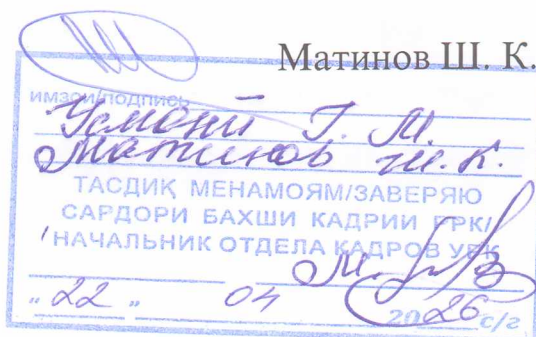 Матинов Ш. К.
имзои/подпись
Усмонӣ Г. М.
Матинов Ш. К.
ТАСДИҚ МЕНАМОЯМ/ЗАВЕРЯЮ
САРДОРИ БАХШИ КАДРИИ РРК/
НАЧАЛЬНИК ОТДЕЛА КАДРОВ УРК
„ 22 „ 04 2026 с/г